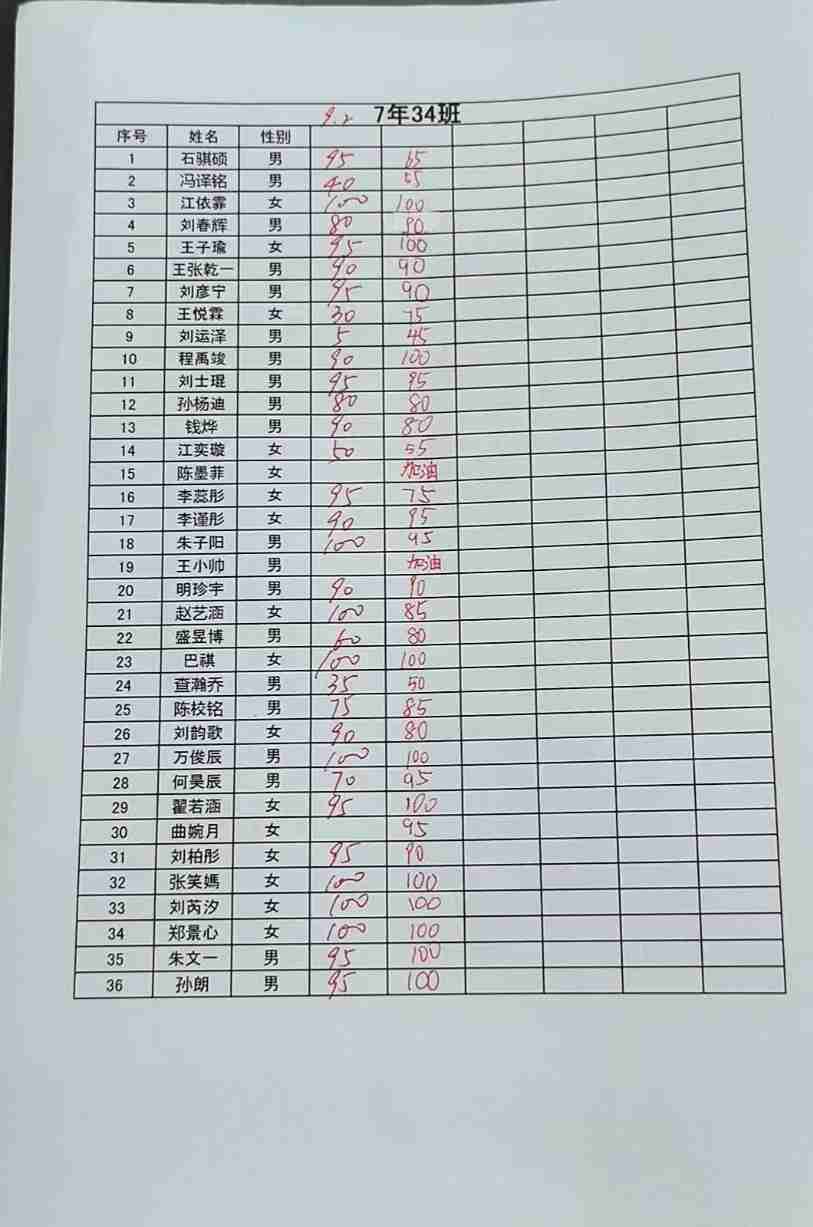 9.2 7年34班
序号 姓名 性别
1 石骐硕 男 95 65
2 冯译铭 男 40 55
3 江依霏 女 100 100
4 刘春辉 男 80 90
5 王子瑜 女 95 100
6 王张乾一 男 90 90
7 刘彦宁 男 95 90
8 王悦霖 女 30 75
9 刘运泽 男 5 45
10 程禹竣 男 90 100
11 刘士琨 男 95 95
12 孙杨迪 男 80 80
13 钱烨 男 90 80
14 江奕璇 女 50 55
15 陈墨菲 女 加油
16 李蕊彤 女 95 75
17 李谨彤 女 90 95
18 朱子阳 男 100 95
19 王小帅 男 加油
20 明珍宇 男 90 90
21 赵艺涵 女 100 85
22 盛昱博 男 60 80
23 巴祺 女 100 100
24 查瀚乔 男 35 50
25 陈校铭 男 75 85
26 刘韵歌 女 90 80
27 万俊辰 男 100 100
28 何昊辰 男 70 95
29 翟若涵 女 95 100
30 曲婉月 女 95
31 刘柏彤 女 95 90
32 张笑嫣 女 100 100
33 刘芮汐 女 100 100
34 郑景心 女 100 100
35 朱文一 男 95 100
36 孙朗 男 95 100